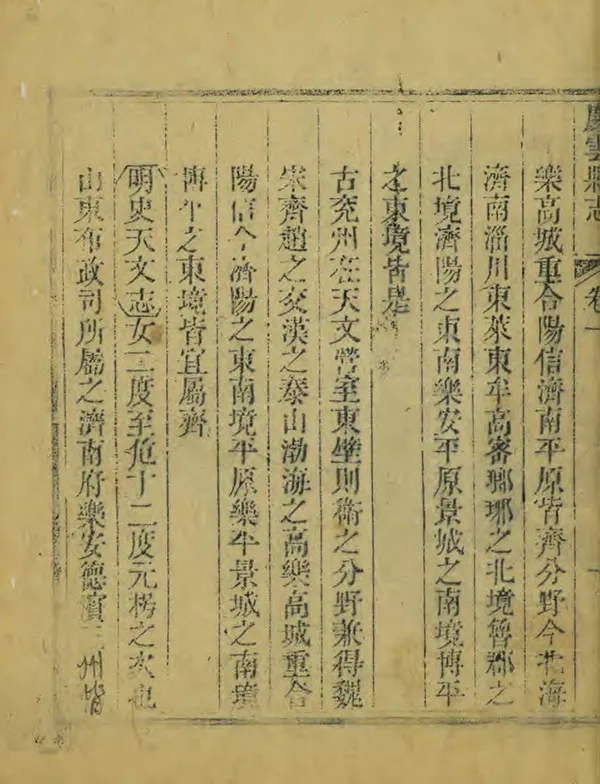 慶雲縣志 卷一
樂高城重合陽信濟南平原皆齊分野今北海
濟南淄川東萊東牟高密瑯琊之北境魯郡之
北境濟陽之東南樂安平原景城之南境博平
之東境皆是
古兗州在天文營室東壁則衛之分野兼得魏
宋齊趙之交漢之泰山渤海之高樂高城重合
陽信今濟陽之東南境平原樂平景城之南境
博平之東境皆宜屬齊
明史天文志女二度至危十二度元枵之次也
山東布政司所屬之濟南府樂安德濱三州皆